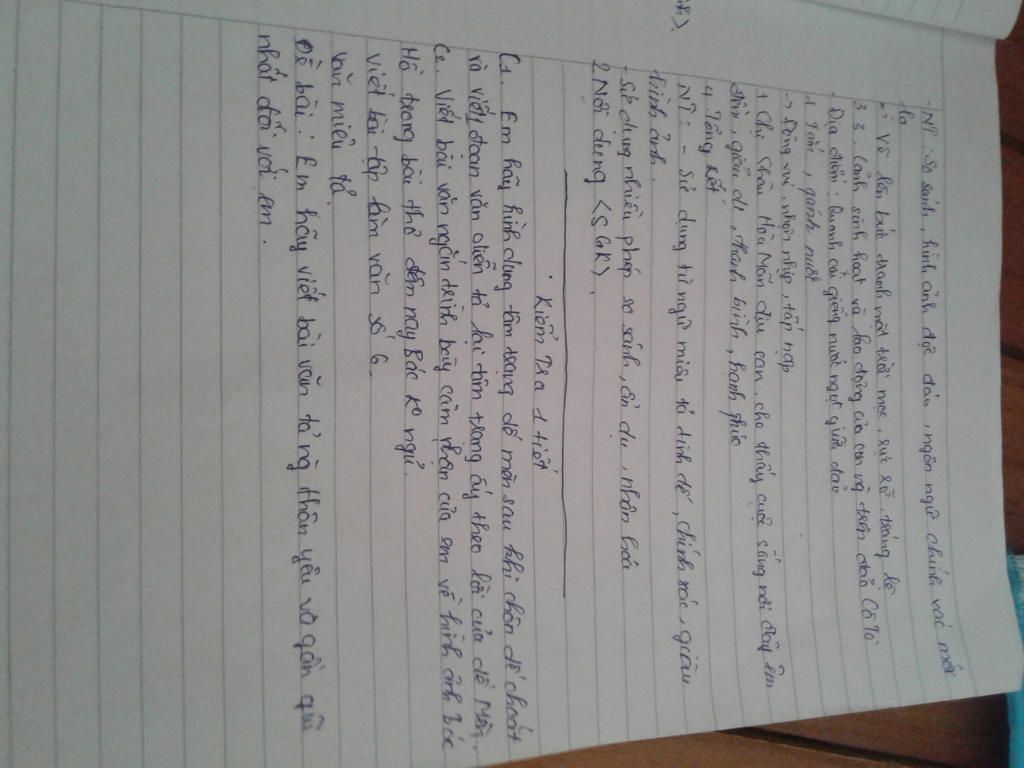 - NT: So sánh, hình ảnh độc đáo, ngôn ngữ chính xác
=> Vẽ lên bức tranh mặt trời mọc, rực rỡ, tráng lệ
3.3. Cảnh sinh hoạt và lao động của con ng trên đảo Cô Tô
- Địa điểm: Quanh cái giếng nước ngọt giữa đảo
+ Tắm, gánh nước
-> Đông vui, nhộn nhịp, tấp nập
+ Chị Châu Hòa Mãn địu con, cho thấy cuộc sống nơi đây êm
đềm, giản dị, thanh bình, hạnh phúc
4. Tổng kết
NT: - Sử dụng từ ngữ miêu tả tinh tế, chính xác, giàu
hình ảnh.
- Sử dụng nhiều phép so sánh, ẩn dụ, nhân hoá
2. Nội dung <SGK>.
Kiểm tra 1 tiết
C1. Em hãy hình dung tâm trạng dế mèn sau khi chôn dế choắt
và viết đoạn văn diễn tả lại tâm trạng ấy theo lời của dế Mèn.
C2. Viết bài văn ngắn trình bày cảm nhận của em về hình ảnh Bác
Hồ trong bài thơ đêm nay Bác ko ngủ.
Viết bài tập làm văn số 6.
Văn miêu tả
Đề bài: Em hãy viết bài văn tả ng thân yêu và gần gũi
nhất đối với em.